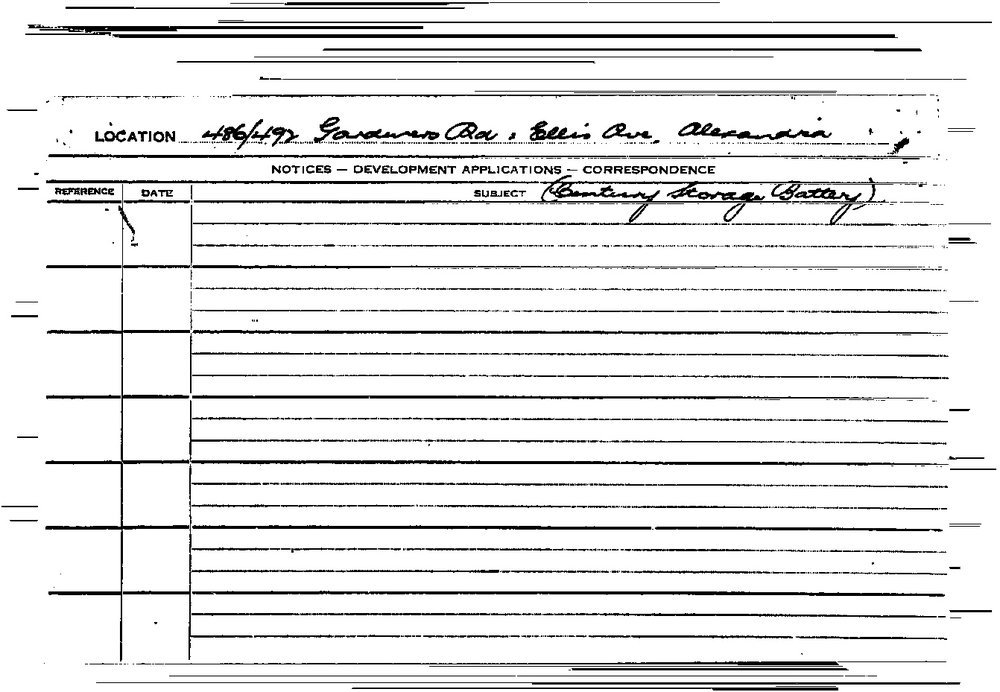 LOCATION 486/492 Gardeners Rd & Ellis Ave, Alexandria
NOTICES — DEVELOPMENT APPLICATIONS — CORRESPONDENCE
REFERENCE DATE SUBJECT (Century Storage Battery)